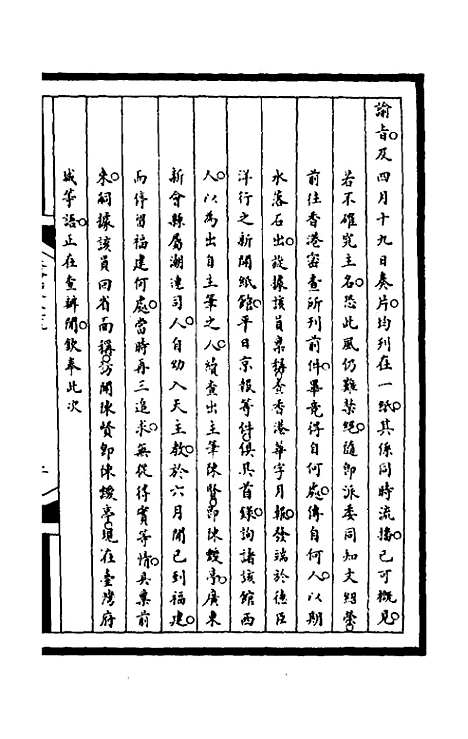 諭旨及四月十九日奏片均列在一紙其係同時流播已可概見
若不確究主名恐此風仍難禁絕隨即派委同知文紹榮
前往香港密查所刊前件畢竟得自何處傳自何人以期
水落石出茲據該員稟稱查香港華字月報發端於德臣
洋行之新聞紙館平日京報等件俱具首錄詢諸該館西
人以為出自主筆之人續查出主筆陳賢即陳靉亭廣東
新會縣屬潮連司人自幼入天主教於六月間已到福建
而停留福建何處當時再三追求無從得實等情具稟前
來嗣據該員回省面稱訪聞陳賢即陳靉亭現在臺灣府
城等語正在查辦間欽奉此次